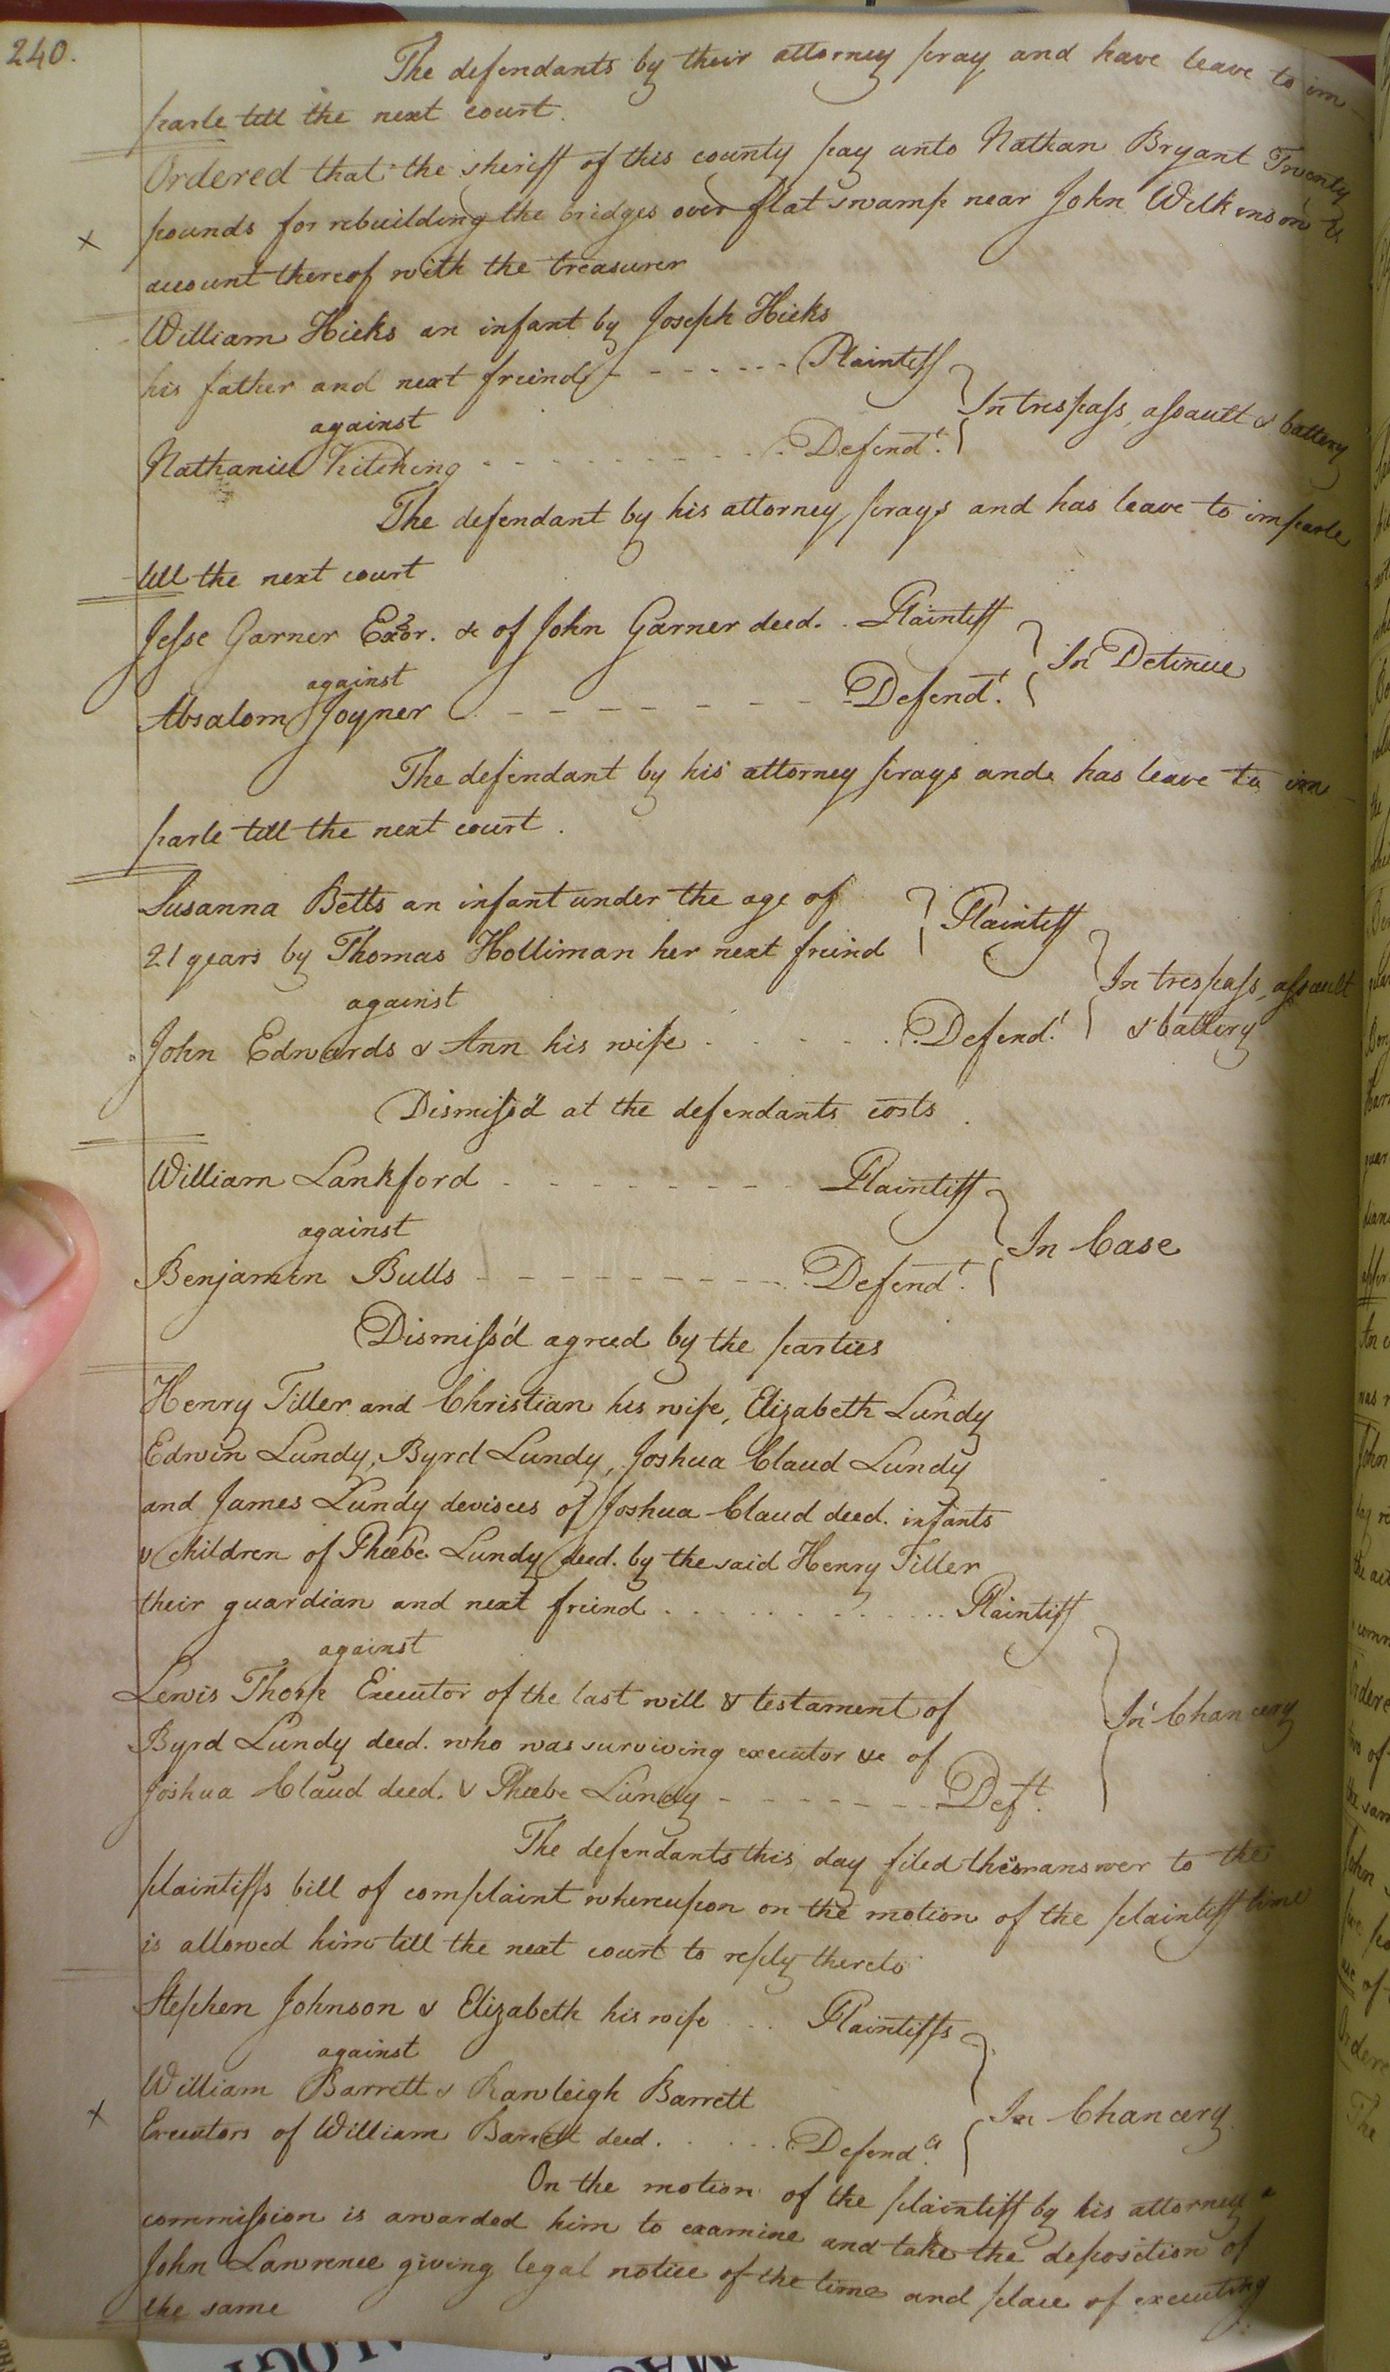 240.
The defendants by their attorney pray and have leave to im
parle till the next court.
Ordered that the sheriff of this county pay unto Nathan Bryant Twenty
pounds for rebuilding the bridges over flat swamp near John Wilkinson's &
x
account thereof with the treasurer
William Hicks an infant by Joseph Hicks
his father and next freind - - - - - - Plaintiff
In trespass, assault & battery
against
Nathaniel Kitching - - - - - - - - - Defendt.
The defendant by his attorney prays and has leave to imparle
till the next court
Jesse Garner Exor. &c of John Garner decd. . Plaintiff
In Detinue
against
Absalom Joyner - - - - - - - - Defendt.
The defendant by his attorney prays and has leave to im
parle till the next court.
Susanna Betts an infant under the age of
21 years by Thomas Holliman her next freind
Plaintiff
In trespass, assault
& battery
against
John Edwards & Ann his wife . . . . . . Defendt.
Dismiss'd at the defendants costs.
William Lankford - - - - - - - - Plaintiff
against
In Case
Benjamin Bulls - - - - - - - - - Defendt.
Dismiss'd agreed by the parties
Henry Tiller and Christian his wife, Elizabeth Lundy
Edwin Lundy, Byrd Lundy, Joshua Claud Lundy
and James Lundy devisees of Joshua Claud decd. infants
& children of Phœbe Lundy decd. by the said Henry Tiller
their guardian and next freind . . . . . . . . . Plaintiff
against
Lewis Thorp Executor of the last will & testament of
In Chancery
Byrd Lundy decd. who was surviving executor &c of
Joshua Claud decd. & Phœbe Lundy - - - - - - - Deft.
The defendants this day filed their answer to the
plaintiffs bill of complaint whereupon on the motion of the plaintiff time
is allowed him till the next court to reply thereto
Stephen Johnson & Elizabeth his wife . . . Plaintiffs
against
William Barrett & Rawleigh Barrett
x
In Chancery
Executors of William Barrett decd. . . . . . Defendts.
On the motion of the plaintiff by his attorney a
commission is awarded him to examine and take the deposition of
John Lawrence giving legal notice of the time and place of executing
the same